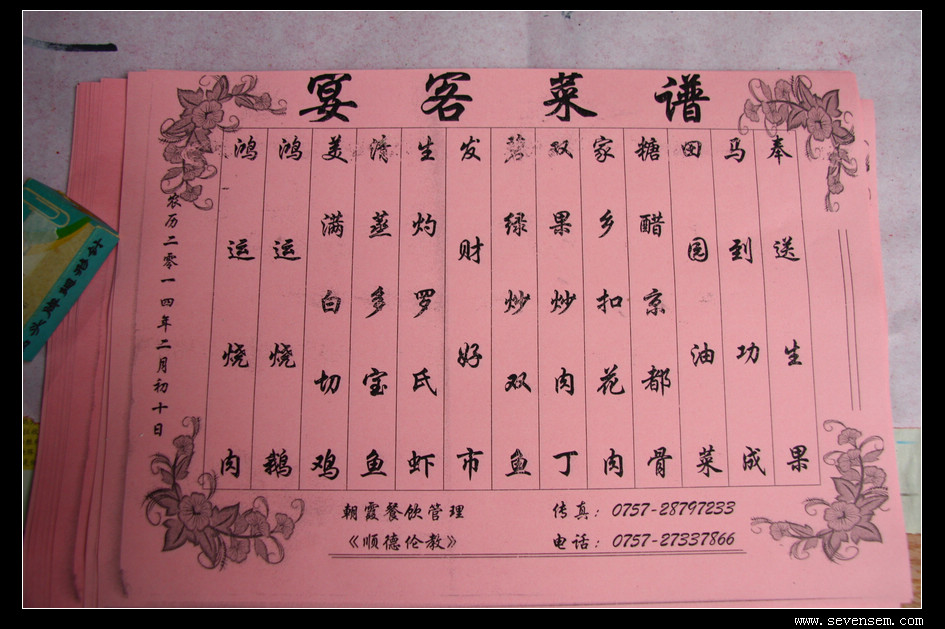 宴客菜谱
农历二零一四年二月初十日
鸿运烧肉
鸿运烧鹅
美满白切鸡
清蒸多宝鱼
生灼罗氏虾
发财好市
碧绿炒双鱼
双果炒肉丁
家乡扣花肉
糖醋京都骨
田园油菜
马到功成
奉送生果
朝霞餐饮管理
《顺德伦教》
传真：0757-28797233
电话：0757-27337866
www.sevensem.com